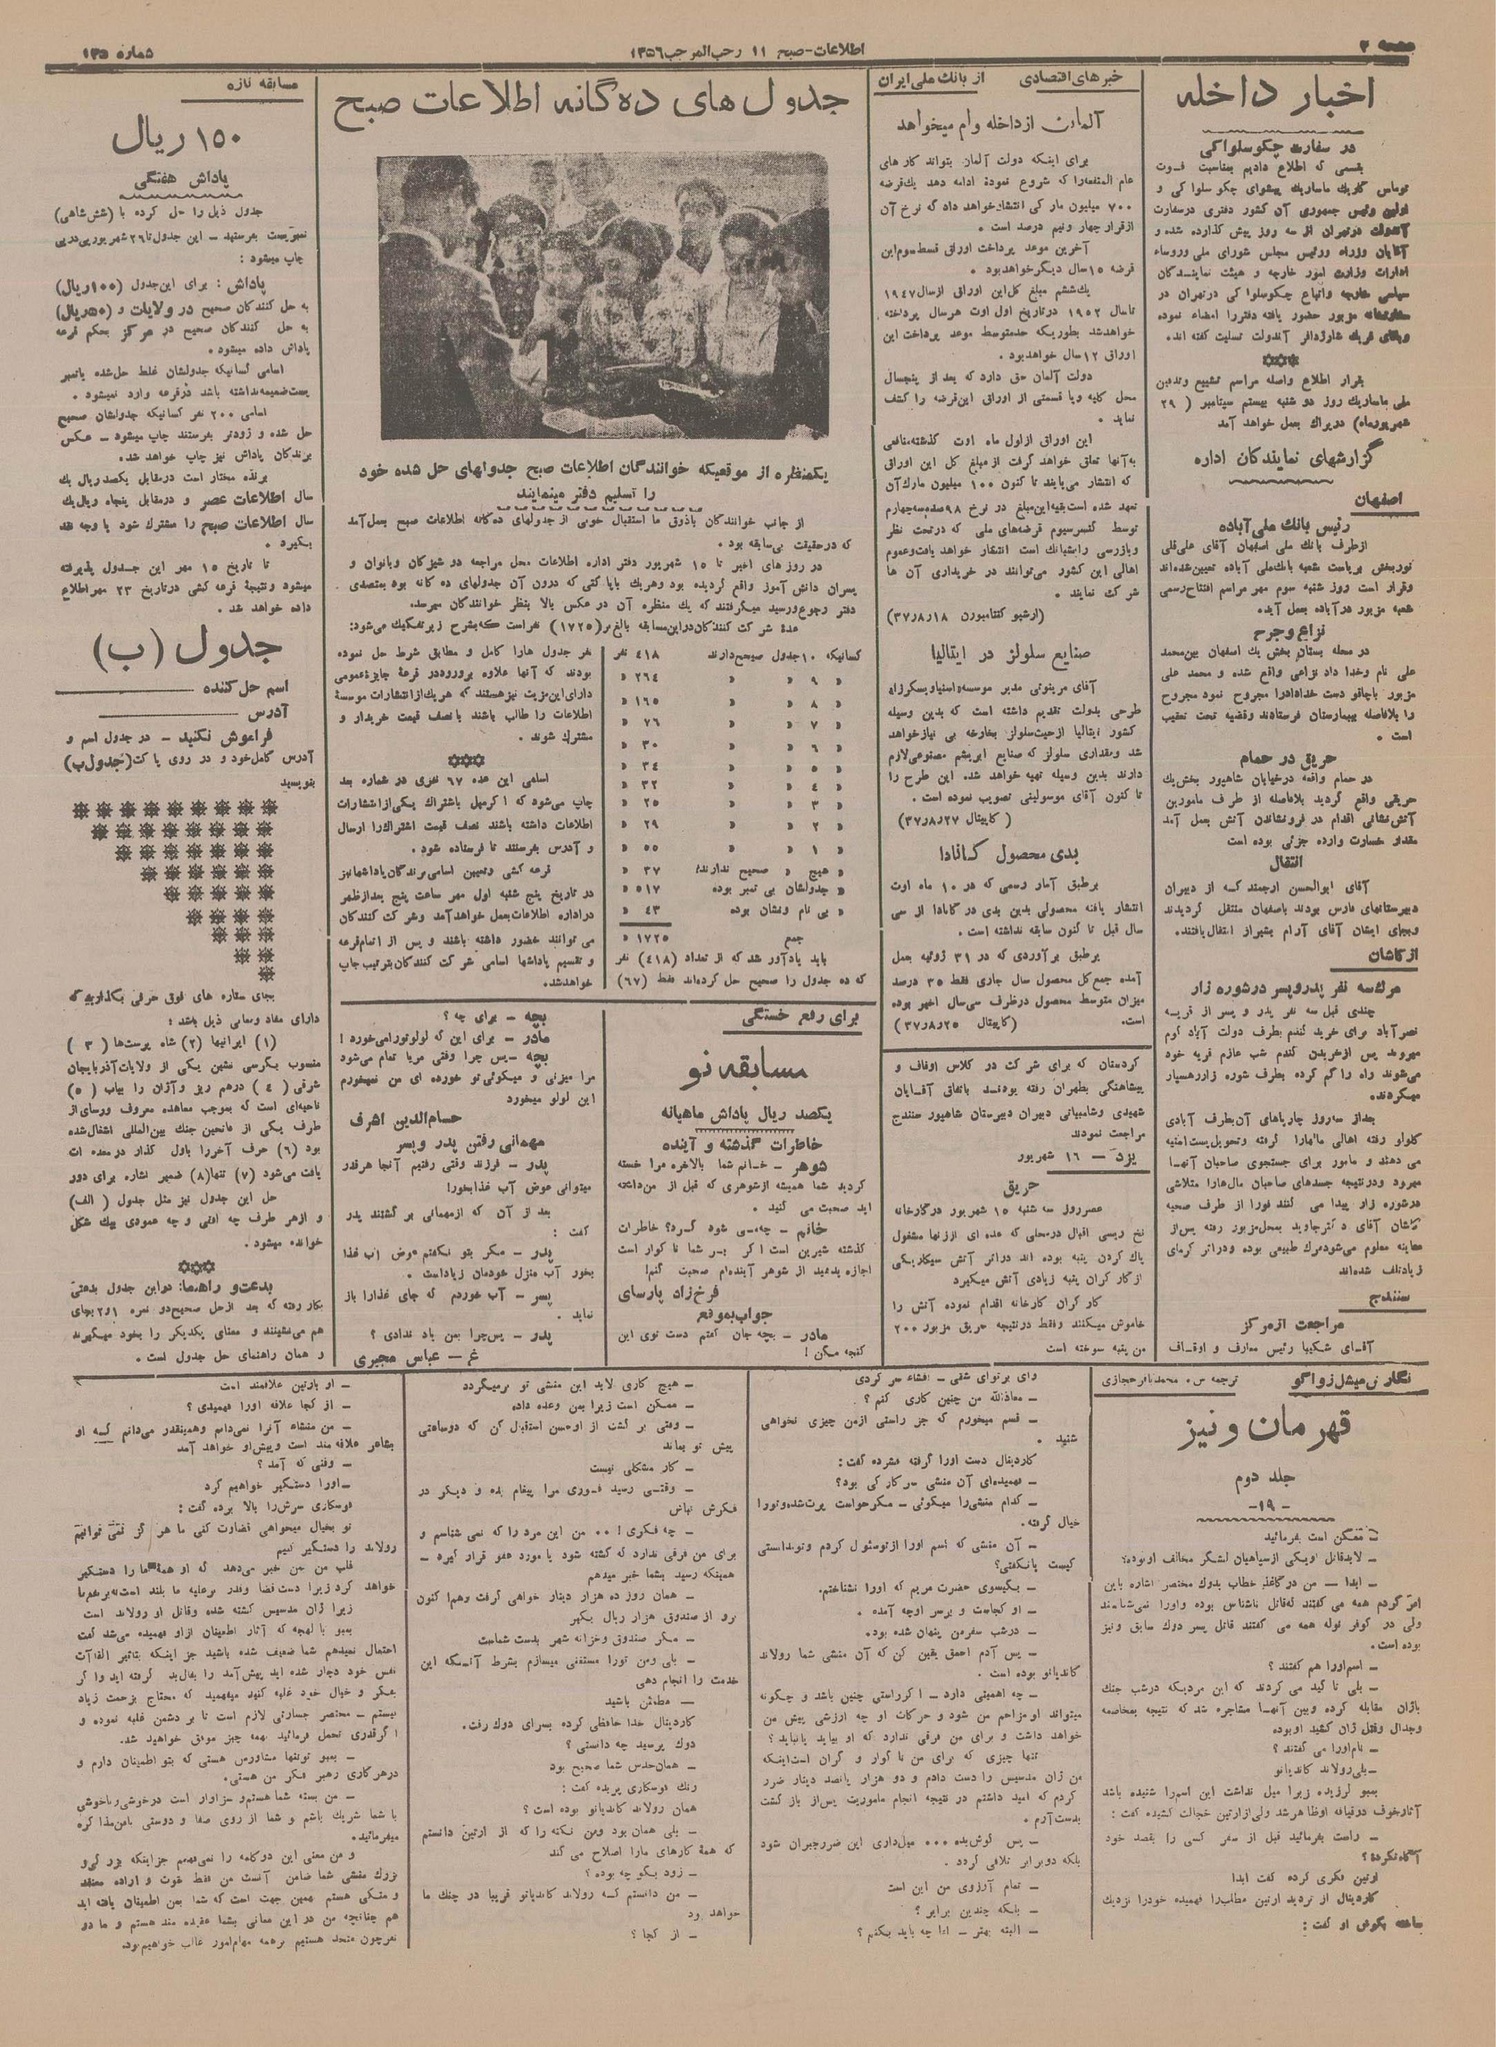 صفحه ۲
اطلاعات - صبح ۱۱ رجب المرجب ۱۳۵۶
شماره ۱۳۵
اخبار داخله
در سفارت چکوسلواکی
بقسمی که اطلاع دادیم بمناسبت فوت
توماس گاریك ماساریك پیشوای چکو سلوا کی و
اولین رئیس جمهوری آن کشور دفتری درسفارت
آندولت درتهران از سه روز پیش گذارده شده و
آقایان وزراء ورئیس مجلس شورای ملی وروساء
ادارات وزارت امور خارجه و هیئت نمایندگان
سیاسی خارجه واتباع چکوسلوا کی درتهران در
سفارتخانه مزبور حضور یافته دفتررا امضاء نموده
وبآقای شارژدافر آندولت تسلیت گفته اند.
بقرار اطلاع واصله مراسم تشییع وتدفین
ملی ماساریك روز دو شنبه بیستم سپتامبر ( ۲۹
شهریورماه) درپراك بعمل خواهد آمد
گزارشهای نمایندکان اداره
اصفهان
رئیس بانك ملی آباده
ازطرف بانك ملی اصفهان آقای علی قلی
نوربخش بریاست شعبه بانك ملی آباده تعیین شده اند
وقرار است روز شنبه سوم مهر مراسم افتتاح رسمی
شعبه مزبور درآباده بعمل آید.
نزاع و جرح
در محله بستان بخش یك اصفهان بین محمد
علی نام وخدا داد نزاعی واقع شده و محمد علی
مزبور باچاقو دست خدادادرا مجروح نمود مجروح
را بلافاصله بیمارستان فرستادند وقضیه تحت تعقیب
است .
حریق در حمام
در حمام واقعه درخیابان شاهپور بخش یك
حریقی واقع گردید بلافاصله از طرف مامورین
آتش نشانی اقدام در فرونشاندن آتش بعمل آمد
مقدار خسارت وارده جزئی بوده است
انتقال
آقای ابوالحسن ارجمند کسه از دبیران
دبیرستانهای فارس بودند باصفهان منتقل گردیدند
وبجای ایشان آقای آرام بشیراز انتقال یافتند.
از کاشان
مرك سه نفر پدر وپسر درشوره زار
چندی قبل سه نفر پدر و پسر از قریسه
نصرآباد برای خرید گندم بطرف دولت آباد قوم
میروند پس ازخریدن گندم شب عازم قریه خود
می شوند راه را گم کرده بطرف شوره زار رهسپار
میکردند.
بعداز سه روز چارپاهای آن بطرف آبادی
رفته اهالی مالهارا گرفته وتحویل پست امنیه
می دهند و مامور برای جستجوی صاحبان آنهسا
میرود ودرنتیجه جسدهای صاحبان مال هارا متلاشی
درشوره زار پیدا می کنند فورا از طرف صحیه
کاشان آقای دکتر جاوید بمحل مزبور رفته پس از
معاینه معلوم می شودمرك طبیعی بوده ودراثر گرمای
زیادتلف شده اند
سنندج
مراجعت از مرکز
آقسای شکیبا رئیس معارف و اوقاف
خبرهای اقتصادی
از بانك ملی ایران
آلمان از داخله وام میخواهد
برای اینکه دولت آلمان بتواند کار های
عام المنفعه را که شروع نموده ادامه دهد یك قرضه
۷۰۰ میلیون مار کی انتشار خواهد داد که نرخ آن
ازقرار چهار ونیم درصد است .
آخرین موعد پرداخت اوراق قسط سوم این
قرضه ۱۵ سال دیگر خواهدبود .
یك ششم مبلغ کل این اوراق ازسال ۱۹۴۷
تاسال ۱۹۵۲ درتاریخ اول اوت هرسال پرداخته
خواهدشد بطوریکه حدمتوسط موعد پرداخت این
اوراق ۱۲ سال خواهدبود .
دولت آلمان حق دارد که بعد از پنجسال
محل کلیه ویا قسمتی از اوراق این قرضه را کشف
نماید .
این اوراق ازاول ماه اوت گذشته منافعی
به آنها تعلق خواهد گرفت از مبلغ کل این اوراق
که انتشار می یابند تا کنون ۱۰۰ میلیون مارك آن
تعهد شده است بقیه این مبلغ در نرخ ۹۸ سه چهارم
توسط کنسرسیوم قرضه های ملی که درتحت نظر
وبازرسی رایشبانك است انتشار خواهد یافت وعموم
اهالی این کشور می توانند در خریداری آن ها
شرکت نمایند .
صنایع سلولز در ایتالیا
آقای مرینوتی مدیر موسسه اسنیاویسکرزاه
طرحی بدولت تقدیم داشته است که بدین وسیله
کشور ایتالیا ازحیث سلولز بخارجه بی نیازخواهد
شد ومقداری سلولز که صنایع ابریشم مصنوعی لازم
دارند بدین وسیله تهیه خواهد شد. این طرح را
تا کنون آقای موسولینی تصویب نموده است .
( کاپیتال ۳۷ر۸ر۲۷)
بدی محصول کانادا
برطبق آمار رسمی که در ۱۰ ماه اوت
انتشار یافته محصولی بدین بدی در کانادا از سی
سال قبل تا کنون سابقه نداشته است .
برطبق برآوردی که در ۳۱ ژوئیه بعمل
آمده جمع کل محصول سال جاری فقط ۳۵ درصد
میزان متوسط محصول درظرف سی سال اخیر بوده
است. (کاپیتال ۳۷ر۸ر۲۵)
کردستان که برای شرکت در کلاس اوقاف و
پیشاهنگی بطهران رفته بودنسد باتفاق آقسایان
شهیدی وشامبیاتی دبیران دبیرستان شاهپور سنندج
مراجعت نمودند
یزد — ۱۶ شهریور
حریق
عصرروز سه شنبه ۱۵ شهریور درکارخانه
نخ ریسی اقبال درمحلی که عده ای اززنها مشغول
پاك کردن پنبه بوده اند دراثر آتش سیکاریکی
از کار کران پنبه زیادی آتش میکیرد
کار کران کارخانه اقدام نموده آتش را
خاموش میکنند وفقط درنتیجه حریق مزبور ۲۰۰
من پنبه سوخته است
جدول های ده گانه اطلاعات صبح
یکمنظره از موقعیکه خوانندگان اطلاعات صبح جدولهای حل شده خود
را تسلیم دفتر مینمایند
از جانب خوانندگان باذوق ما استقبال خوبی از جدولهای ده گانه اطلاعات صبح بعمل آمد
که درحقیقت بی سابقه بود .
در روز های اخیر تا ۱۵ شهریور دفتر اداره اطلاعات محل مراجعه دو شیزگان وبانوان و
پسران دانش آموز واقع گردیده بود وهریك با پا کتی که درون آن جدولهای ده گانه بود بمتصدی
دفتر رجوع ورسید میگرفتند که یك منظره آن در عکس بالا بنظر خوانندگان میرسد.
عدهٔ شرکت کنندگان دراین مسابقه بالغ بر (۱۷۲۵) نفراست که بشرح زیر تفکیك می شود:
کسانیکه ۱۰ جدول صحیح دارند ۴۱۸ نفر
« ۹ « « ۲۶۴ «
« ۸ « « ۱۶۵ «
« ۷ « « ۷۶ «
« ۶ « « ۳۰ «
« ۵ « « ۳۴ «
« ۴ « « ۳۲ «
« ۳ « « ۲۵ «
« ۲ « « ۲۹ «
« ۱ « « ۵۵ «
« هیچ « صحیح ندارند ۳۷ «
« جدولشان بی تمبر بوده ۵۱۷ «
« بی نام ونشان بوده ۴۳ «
جمع ۱۷۲۵ «
باید یادآور شد که از تعداد (۴۱۸) نفر
که ده جدول را صحیح حل کرده اند فقط (۶۷)
نفر جدول هارا کامل و مطابق شرط حل نموده
بودند که آنها علاوه برورود در قرعهٔ جایزه عمومی
دارای این مزیت نیزهستند که هریك از انتشارات موسسهٔ
اطلاعات را طالب باشند بانصف قیمت خریدار و
مشترك شوند .
اسامی این عده ۶۷ نفری در شماره بعد
چاپ می شود که اگر میل باشتراك یکی از انتشارات
اطلاعات داشته باشند نصف قیمت اشتراك را ارسال
و آدرس بفرستند تا فرستاده شود .
قرعه کشی وتعیین اسامی برندگان پاداشها نیز
در تاریخ پنج شنبه اول مهر ساعت پنج بعدازظهر
دراداره اطلاعات بعمل خواهدآمد وشرکت کنندگان
می توانند حضور داشته باشند و پس از اتمام قرعه
و تقسیم پاداشها اسامی شرکت کنندگان بترتیب چاپ
خواهدشد.
برای رفع خستگی
مسابقه نو
یکصد ریال پاداش ماهیانه
خاطرات گذشته و آینده
شوهر - خانم شما بالاخره مرا خسته
کردید شما همیشه ازشوهری که قبل از من داشته
اید صحبت می کنید .
خانم - چه می شود کرد؟ خاطرات
گذشته شیرین است اگر بر شما ناگوار است
اجازه بدهید از شوهر آینده ام صحبت کنم!
فرخ زاد پارسای
جواب بموقع
مادر - بچه جان گفتم دست توی این
گنجه مکن !
بچه - برای چه ؟
مادر - برای این که لولو تورا می خورد !
بچه - پس چرا وقتی مربا تمام می شود
مرا میزنی و میکوئی تو خورده ای من نمیخورم
این لولو میخورد
حسام الدین اشرف
مهمانی رفتن پدر وپسر
پدر - فرزند وقتی رفتیم آنجا هرقدر
میتوانی عوض آب غذا بخور!
بعد از آن که ازمهمانی برگشتند پدر
گفت :
پدر - مگر بتو نگفتم عوض آب غذا
بخور آب منزل خودمان زیاداست .
پسر - آب خوردم که جای غذارا باز
نماید .
پدر - پس چرا بمن یاد ندادی ؟
غ - عباس مجیری
مسابقه تازه
۱۵۰ ریال
پاداش هفتگی
جدول ذیل را حل کرده با (شش شاهی)
تمبرپست بفرستید - این جدول تا ۲۶ شهریور پی درپی
چاپ میشود :
پاداش : برای این جدول (۱۰۰ ریال)
به حل کنندگان صحیح در ولایات و (۵۰ ریال)
به حل کنندگان صحیح در مرکز بحکم قرعه
پاداش داده میشود .
اسامی کسانیکه جدولشان غلط حل شده یاتمبر
پست ضمیمه نداشته باشد درقرعه وارد نمیشود .
اسامی ۲۰۰ نفر کسانیکه جدولشان صحیح
حل شده و زودتر بفرستند چاپ میشود - عکس
برندگان پاداش نیز چاپ خواهد شد.
برنده مختار است درمقابل یکصد ریال یك
سال اطلاعات عصر و درمقابل پنجاه ریال یك
سال اطلاعات صبح را مشترك شود یا وجه نقد
بگیرد .
تا تاریخ ۱۵ مهر این جسدول پذیرفته
میشود ونتیجهٔ قرعه کشی درتاریخ ۲۳ مهر اطلاع
داده خواهد شد .
جدول (ب)
اسم حل کننده
آدرس
فراموش نکنید - در جدول اسم و
آدرس کامل خود و در روی پاکت (جدول ب)
بنویسید
بجای ستاره های فوق حرفی بگذارید که
دارای مفاد ومعانی ذیل باشد :
(۱) ایرانیها (۲) شاه پرست ها (۳)
منسوب بکرسی نشین یکی از ولایات آذربایجان
شرقی (۴) درهم ریز وآژان را بیاب (۵)
ناحیه ای است که بموجب معاهده معروف ورسای از
طرف یکی از فاتحین جنك بین المللی اشغال شده
بود (۶) حرف آخررا باول گذار درمعده ات
یافت می شود (۷) تنها (۸) ضمیر اشاره برای دور
حل این جدول نیز مثل جدول (الف)
و ازهر طرف چه افقی و چه عمودی بیك شکل
خوانده میشود .
بدعت و راهنما: دراین جدول بدعتی
بکار رفته که بعد ازحل صحیح دو نمره ۱ و ۲ بجای
هم می نشینند و معنای یکدیگر را بخود میگیرند
و همان راهنمای حل جدول است .
نگارش میشل زواگو
قهرمان ونیز
جلد دوم
-۱۹-
- ممکن است بفرمائید
- لابدقاتل اویکی ازسپاهیان لشگر مخالف اوبوده؟
- ابدا - من درکاغذ خطاب بدوك مختصر اشاره باین
امر کردم همه می گفتند که قاتل ناشناس بوده واورا نمی شناسند
ولی در گوفر نوله همه می گفتند قاتل پسر دوك سابق ونیز
بوده است .
- اسم اورا هم گفتند ؟
- بلی تا کید می کردند که این مردیکه درشب جنك
باژان مقابله کرده وبین آنهسا مشاجره شد که نتیجه بمخاصمه
وجدال وقتل ژان کشید اوبوده
- نام اورا می گفتند ؟
- بلی رولاند کاندیانو
بمبو لرزیده زیرا میل نداشت این اسم را شنیده باشد
آثار خوف درقیافه اوظاهر شد ولی ازارتین خجالت کشیده گفت :
- راست بفرمائید قبل از سفر کسی را بقصد خود
آگاه نکردهٔ ؟
ارتین فکری کرده گفت ابدا
کاردینال از تردید ارتین مطلب را فهمیده خودرا نزدیك
ساخته بگوش او گفت :
وای برتوای شقی - افشاء سر کردی
- معاذالله من چنین کاری کنم ؟
- قسم میخورم که جز راستی ازمن چیزی نخواهی
شنید .
کاردینال دست اورا گرفته فشرده گفت :
- فهمیده ای آن منشی سرکار کی بود؟
- کدام منشی را میکوئی - مگر حواست پرت شده وتورا
خیال گرفته .
- آن منشی که اسم اورا ازتوسئول کردم ونتوانستی
کیست یا نگفتی؟
- بگیسوی حضرت مریم که اورا نشناختم.
- او کجاست و برسر اوچه آمده .
- درشب سفرمن پنهان شده بود.
- پس آدم احمق یقین کن که آن منشی شما رولاند
کاندیانو بوده است .
- چه اهمیتی دارد - اگر راستی چنین باشد و چکونه
میتواند او مزاحم من شود و حرکات او چه ارزشی پیش من
خواهد داشت و برای من فرقی ندارد که او بیاید یانیاید ؟
تنها چیزی که برای من نا گوار و گران است اینکه
من ژان مدسیس را دست دادم و دو هزار پانصد دینار ضرر
کردم که امید داشتم در نتیجه انجام ماموریت پس از باز گشت
بدست آرم .
- پس گوش بده ... میل داری این ضررجبران شود
بلکه دوبرابر تلافی گردد .
- تمام آرزوی من این است
- بلکه چندین برابر ؟
- البته بهتر - اما چه باید بکنم ؟
- هیچ کاری لابد این منشی تو برمیگردد
- ممکن است زیرا بمن وعده داده
- وقتی بر گشت از اوحسن استقبال کن که دوساعتی
پیش تو بماند
- کار مشکلی نیست
- وقتی رسید فوری مرا پیغام بده و دیگر در
فکرش نباش
- چه فکری ! .. من این مرد را که نمی شناسم و
برای من فرقی ندارد که کشته شود یا مورد عفو قرار گیرد -
همینکه رسید بشما خبر میدهم
- همان روز ده هزار دینار خواهی گرفت وهم اکنون
برو از صندوق هزار ریال بگیر
- مگر صندوق وخزانه شهر بدست شماست
- بلی ومن تورا مستغنی میسازم بشرط آنکه این
خدمت را انجام دهی
- مطمئن باشید
کاردینال خدا حافظی کرده بسرای دوك رفت.
دوك پرسید چه دانستی ؟
- همان حدس شما صحیح بود
رنك فوسکاری پریده گفت :
همان رولاند کاندیانو بوده است ؟
- بلی همان بود ومن نکته را که از ارتین دانستم
که همهٔ کارهای مارا اصلاح می کند
- زود بگو چه بوده ؟
- من دانستم کسه رولاند کاندیانو قریبا در چنك ما
خواهد بود
- از کجا ؟
- او بارتین علاقمند است
- از کجا علاقه اورا فهمیدی ؟
- من منشاء آنرا نمی دانم وهمینقدر می دانم کسه او
بشاعر علاقه مند است وپیش او خواهد آمد
- وقتی که آمد ؟
- اورا دستگیر خواهیم کرد
فوسکاری سرش را بالا برده گفت :
تو بخیال میخواهی قضاوت کنی ما هر گز نمی توانیم
رولاند را دستگیر کنیم
قلب من بمن خبر می‌دهد که او همهٔ ما را دستگیر
خواهد کرد زیرا دست قضا وقدر برعلیه ما بلند است
زیرا ژان مدسیس کشته شده وقاتل او رولاند است
بمبو با لهجه که آثار اطمینان ازاو فهمیده می شد گفت
احتمال نمیدهم شما ضعیف شده باشید جز اینکه بتاثیر القاآت
نفس خود دچار شده اید پیش آمد را بفال بد گرفته اید
بفکر و خیال خود غلبه کنید میفهمید که محتاج بزحمت زیاد
نیستم - مختصر جسارتی لازم است تا بر دشمن غلبه نموده و
اگر قدری تحمل فرمائید بهمه چیز موفق خواهید شد.
- بمبو توتنها مشاورمن هستی که بتو اطمینان دارم و
درهرکاری رهبر فکر من هستی.
- من بسته شما هستم و سزاوار است درخوشی وناخوشی
با شما شریك باشم و شما از روی صفا و دوستی بامن مذاکره
میفرمائید.
و من معنی این دوکلمه را نمی‌فهمم جزاینکه بزرگی و
بزرك منشی شما ضامن آنست من فقط قوت و اراده معتقد
و متکی هستم بهمین جهت است که شما بمن اطمینان یافته اید
هم چنانچه من در این معانی بشما عقیده مند هستم و ما دو
نفرچون متحد هستیم برهمه مهام امور غالب خواهیم بود.